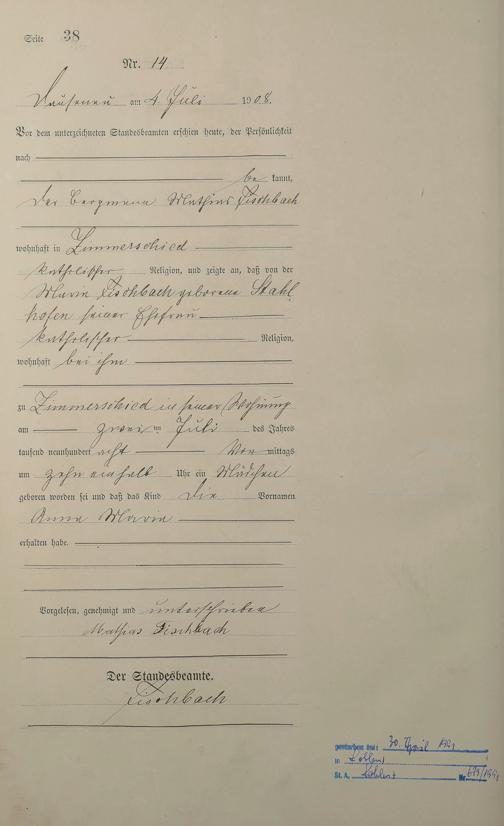 Seite 38
Nr. 14
Dausenau am 4. Juli 1908.
Vor dem unterzeichneten Standesbeamten erschien heute, der Persönlichkeit
nach
be kannt,
der Bergmann Mathias Fischbach
wohnhaft in Zimmerschied
katholischer Religion, und zeigte an, daß von der
Maria Fischbach geborene Stahl
hofen seiner Ehefrau
katholischer Religion,
wohnhaft bei ihm
zu Zimmerschied in seiner Wohnung
am zwei ten Juli des Jahres
tausend neunhundert acht Vor mittags
um zehn einhalb Uhr ein Mädchen
geboren worden sei und daß das Kind die Vornamen
Anna Maria
erhalten habe.
Vorgelesen, genehmigt und unterschrieben
Mathias Fischbach
Der Standesbeamte.
Fischbach
gestorben am: 30. April 1991
in Koblenz
St. A. Koblenz Nr. /1991